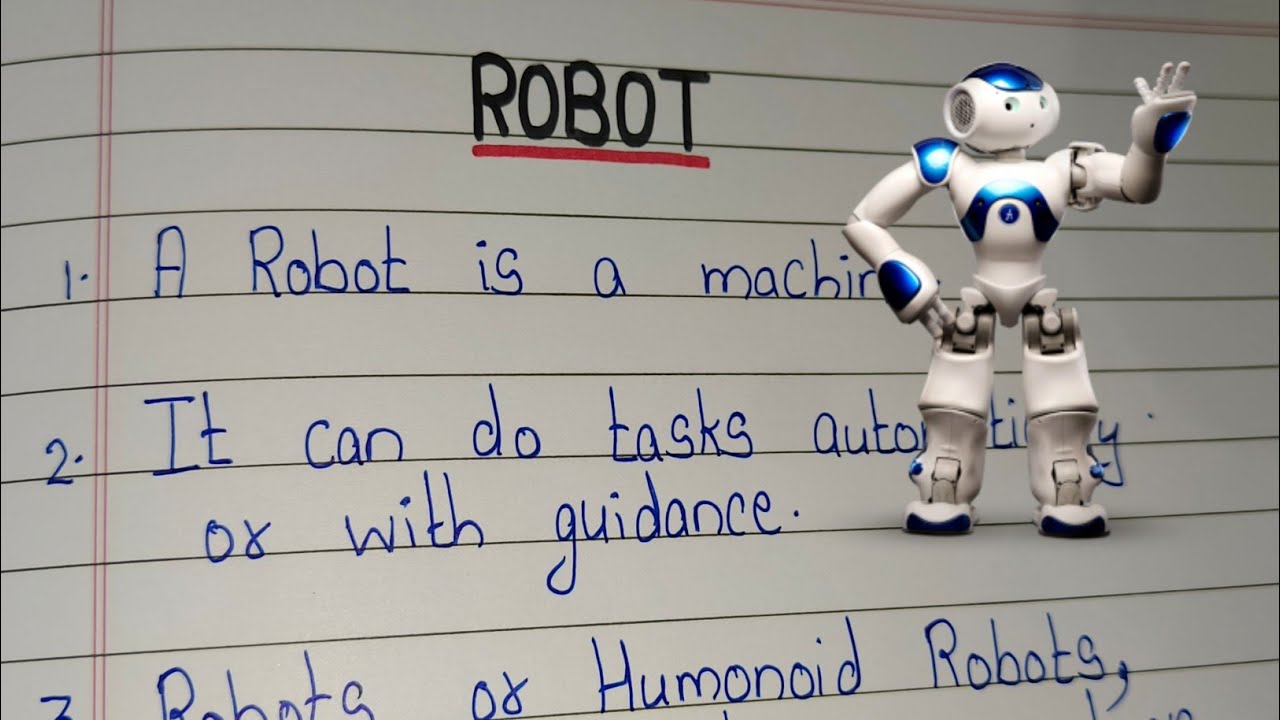 ROBOT
1. A Robot is a machin
2. It can do tasks
or with guidance.
3 Robots or Humonoid Robots,